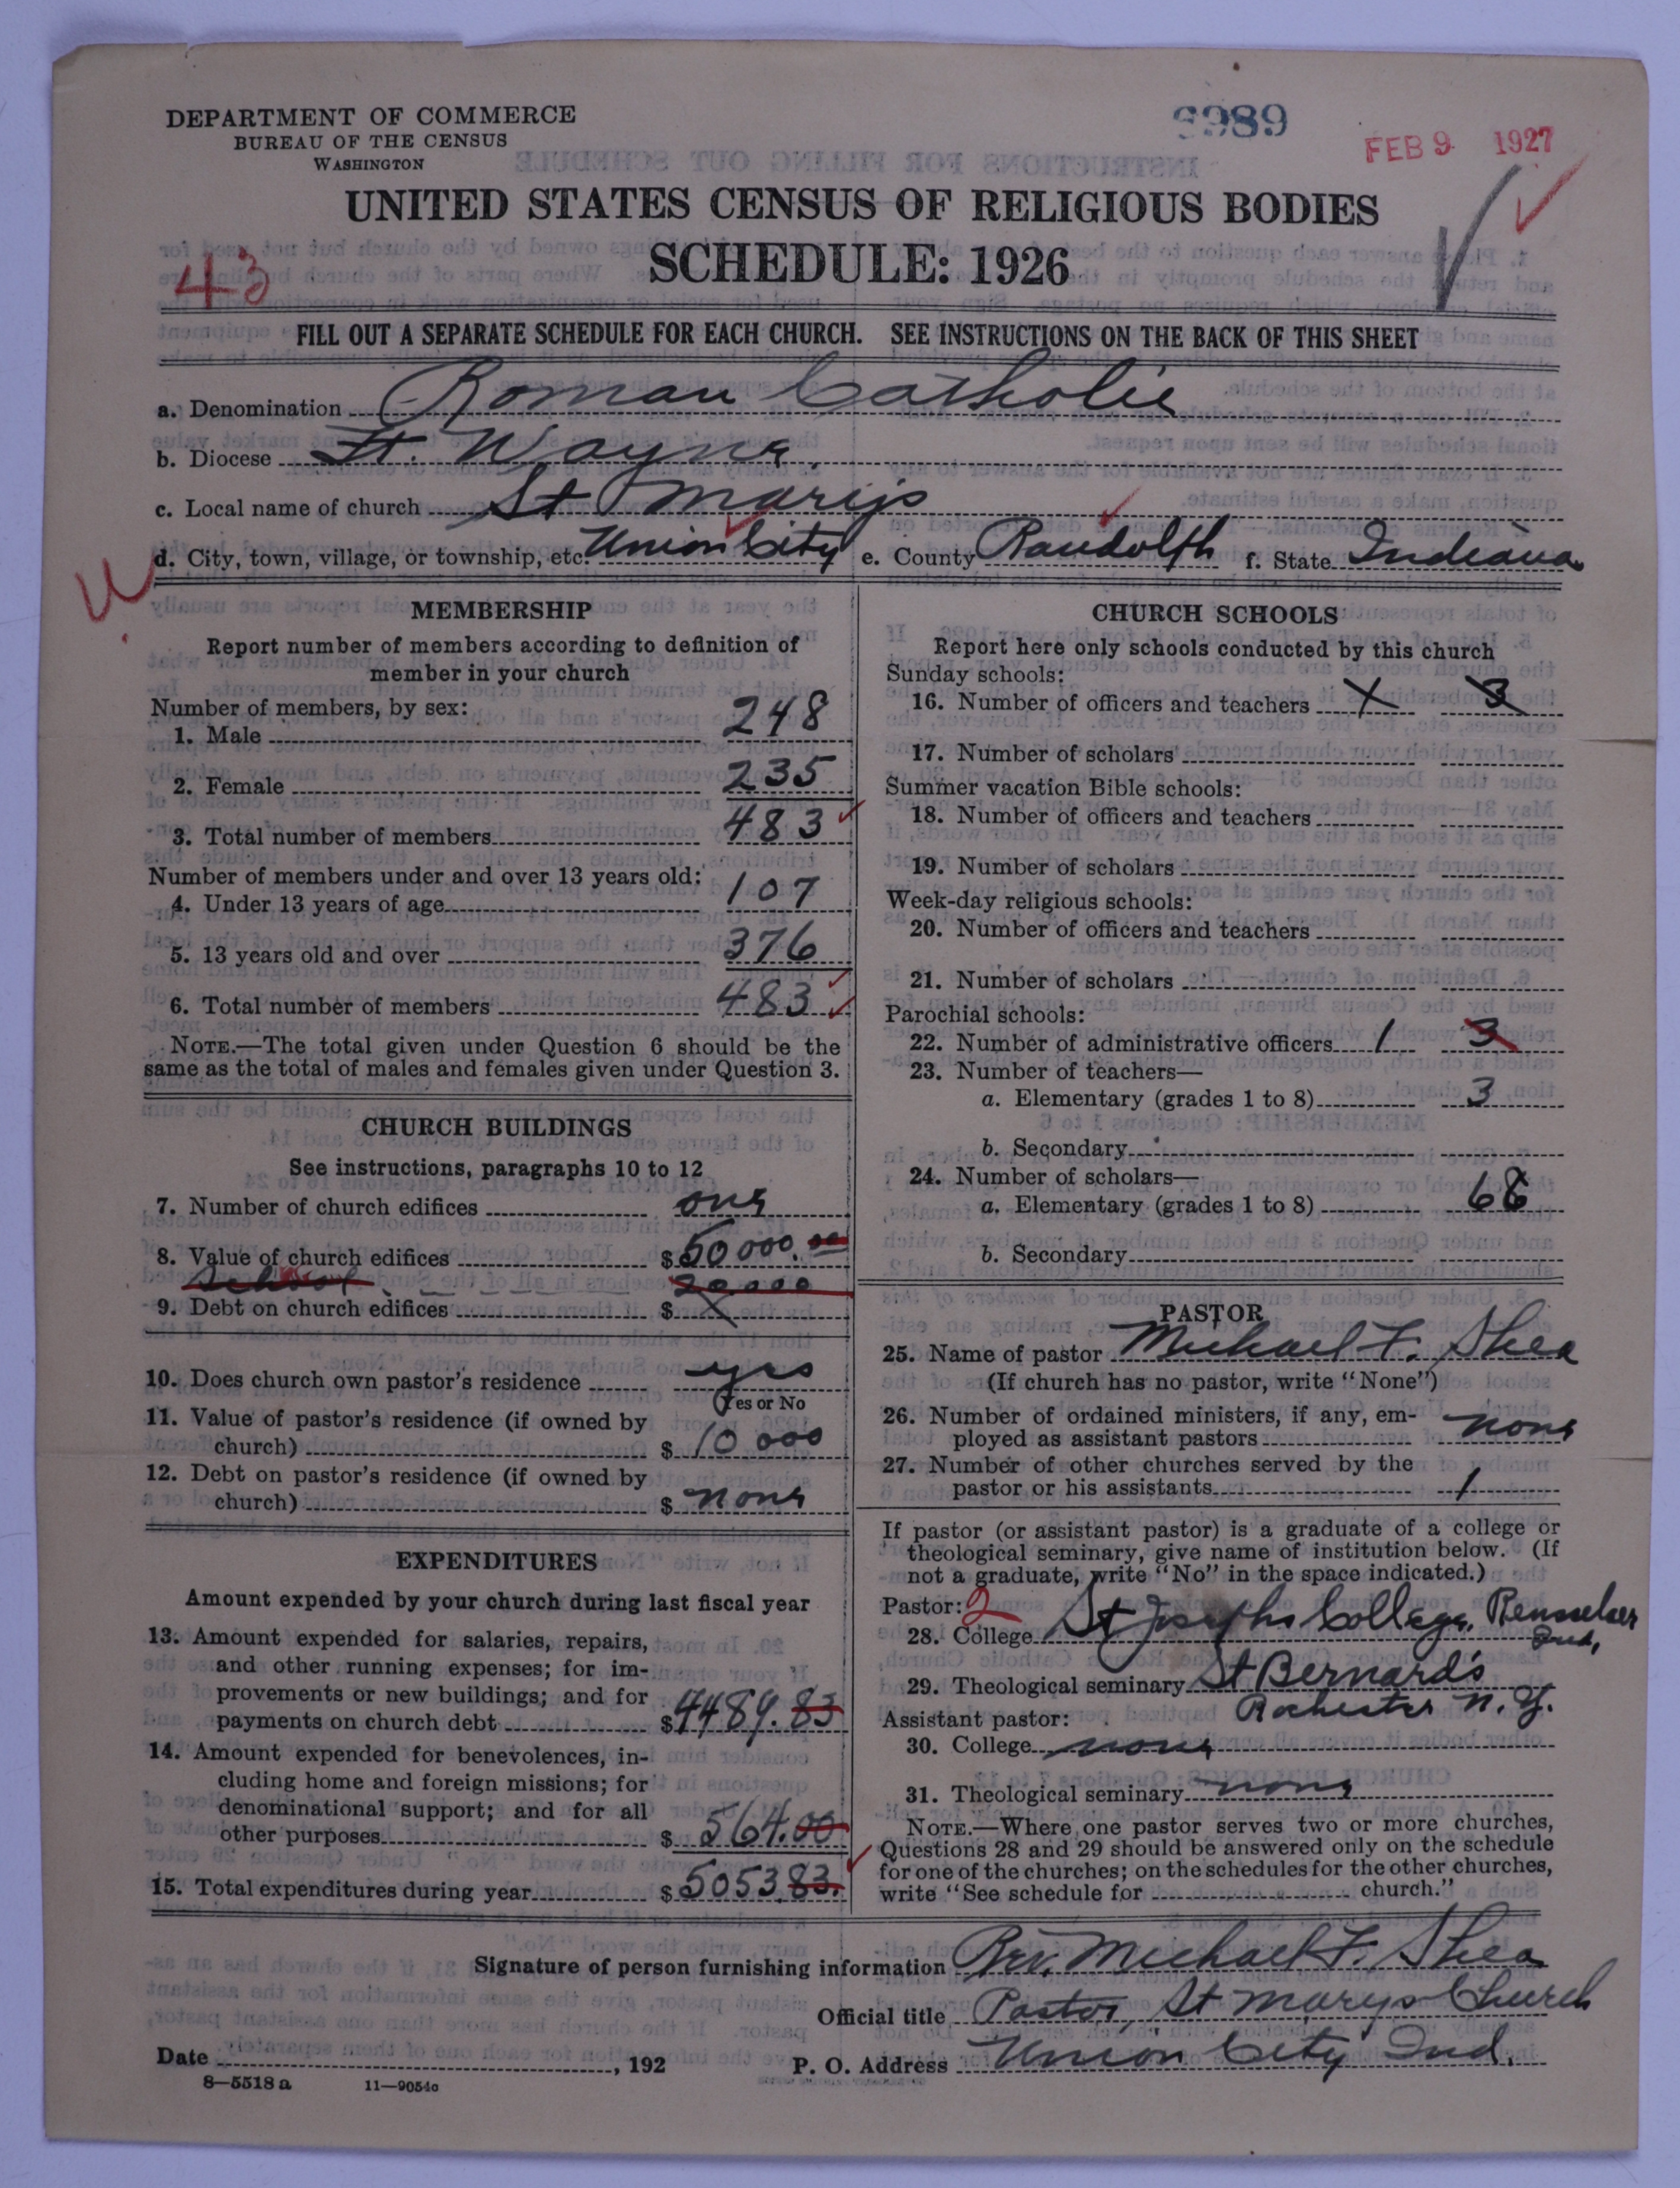 DEPARTMENT OF COMMERCE
BUREAU OF THE CENSUS
WASHINGTON
9989
FEB 9 1927
UNITED STATES CENSUS OF RELIGIOUS BODIES
SCHEDULE: 1926
43
FILL OUT A SEPARATE SCHEDULE FOR EACH CHURCH. SEE INSTRUCTIONS ON THE BACK OF THIS SHEET
a. Denomination Roman Catholic
b. Diocese Ft. Wayne.
c. Local name of church St Marys
d. City, town, village, or township, etc. Union City e. County Randolph f. State Indiana
MEMBERSHIP
Report number of members according to definition of
member in your church
Number of members, by sex:
1. Male 248
2. Female 235
3. Total number of members 483
Number of members under and over 13 years old:
4. Under 13 years of age 107
5. 13 years old and over 376
6. Total number of members 483
NOTE.—The total given under Question 6 should be the
same as the total of males and females given under Question 3.
CHURCH BUILDINGS
See instructions, paragraphs 10 to 12
7. Number of church edifices one
8. Value of church edifices $ 50 000.00
School 20.000
9. Debt on church edifices $ X
10. Does church own pastor's residence yes
(Yes or No
11. Value of pastor's residence (if owned by
church) $ 10 000
12. Debt on pastor's residence (if owned by
church) $ none
EXPENDITURES
Amount expended by your church during last fiscal year
13. Amount expended for salaries, repairs,
and other running expenses; for im-
provements or new buildings; and for
payments on church debt $ 4489.83
14. Amount expended for benevolences, in-
cluding home and foreign missions; for
denominational support; and for all
other purposes $ 564.00
15. Total expenditures during year $ 5053.83.
CHURCH SCHOOLS
Report here only schools conducted by this church
Sunday schools:
16. Number of officers and teachers X 3
17. Number of scholars
Summer vacation Bible schools:
18. Number of officers and teachers
19. Number of scholars
Week-day religious schools:
20. Number of officers and teachers
21. Number of scholars
Parochial schools:
22. Number of administrative officers 1 3
23. Number of teachers—
a. Elementary (grades 1 to 8) 3
b. Secondary
24. Number of scholars—
a. Elementary (grades 1 to 8) 68
b. Secondary
PASTOR
25. Name of pastor Michael F. Shea
(If church has no pastor, write "None")
26. Number of ordained ministers, if any, em-
ployed as assistant pastors none
27. Number of other churches served by the
pastor or his assistants 1
If pastor (or assistant pastor) is a graduate of a college or
theological seminary, give name of institution below. (If
not a graduate, write "No" in the space indicated.)
Pastor: 2
28. College St Josephs College, Rensselaer
Ind,
29. Theological seminary St Bernard's
Rochester N.Y.
Assistant pastor:
30. College none
31. Theological seminary none
NOTE.—Where one pastor serves two or more churches,
Questions 28 and 29 should be answered only on the schedule
for one of the churches; on the schedules for the other churches,
write "See schedule for church."
Signature of person furnishing information Rev. Michael F. Shea
Official title Pastor, St Marys Church
Date , 192 P. O. Address Union City Ind.
8—5518 a 11—9054c